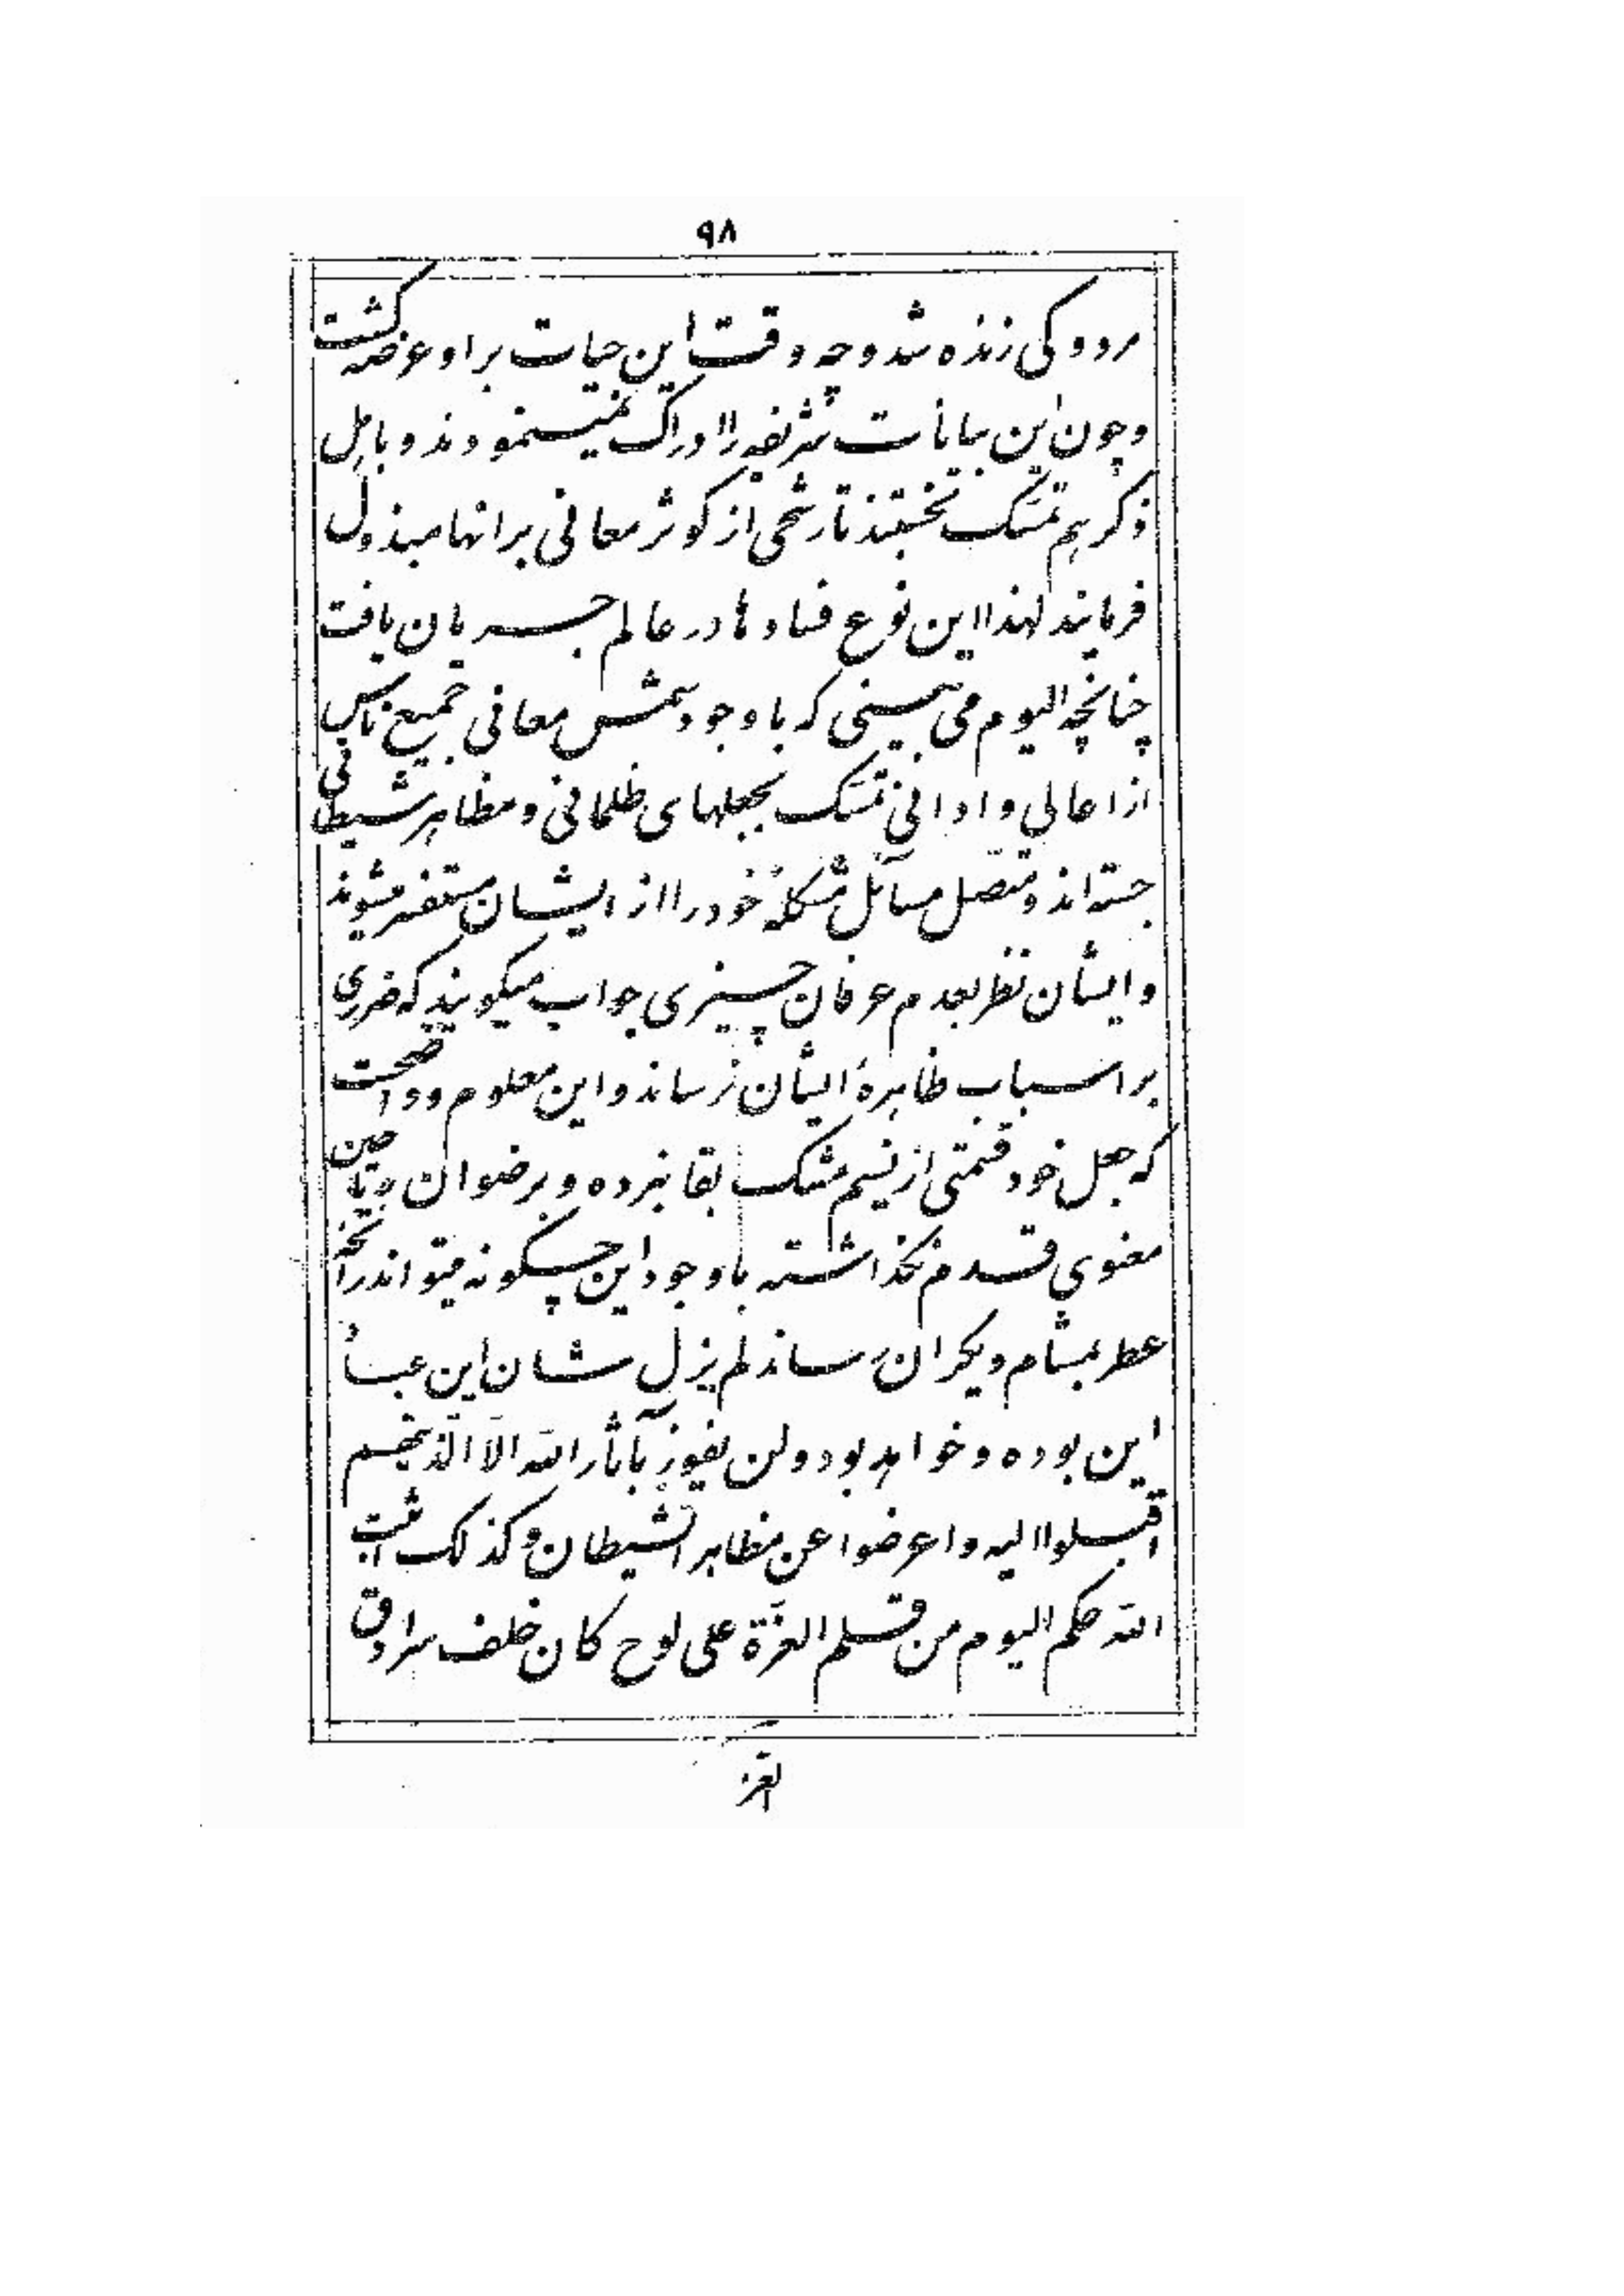 ۹۸
مرد و کی زنده شد و چه وقت این حیات بر او عرضه گشت
و چون این بیانات شریفه را ادراک نمینمودند و باهل
ذکر هم تمسّک نجستند تا رشحی از کوثر معانی بر انها مبذول
فرمایند لهذا این نوع فسادها در عالم جریان یافت
چنانچه الیوم می بینی که با وجود شمس معانی جمیع ناس
از اعالی و ادانی تمسّک بجعلهای ظلمانی و مظاهر شیطانی
جسته اند و متّصل مسائل مشکلهٔ خود را از ایشان مستفسر میشوند
و ایشان نظر بعدم عرفان چیزی جواب میگویند که ضرری
بر اسباب ظاهرهٔ ایشان نرساند و این معلوم و واضحست
که جعل خود قسمتی از نسیم مشک بقا نبرده و برضوان ریاحین
معنوی قدم نگذاشته با وجود این چگونه میتواند رائحهٔ
عطر بمشام دیگران رساند لم یزل شان این عباد
این بوده و خواهد بود و لن یفوز بآثار اللّه الّا الّذینهم
اقبلوا الیه و اعرضوا عن مظاهر الشّیطان و کذلک اثبت
اللّه حکم الیوم من قلم العزّة علی لوح کان خلف سرادق
العز